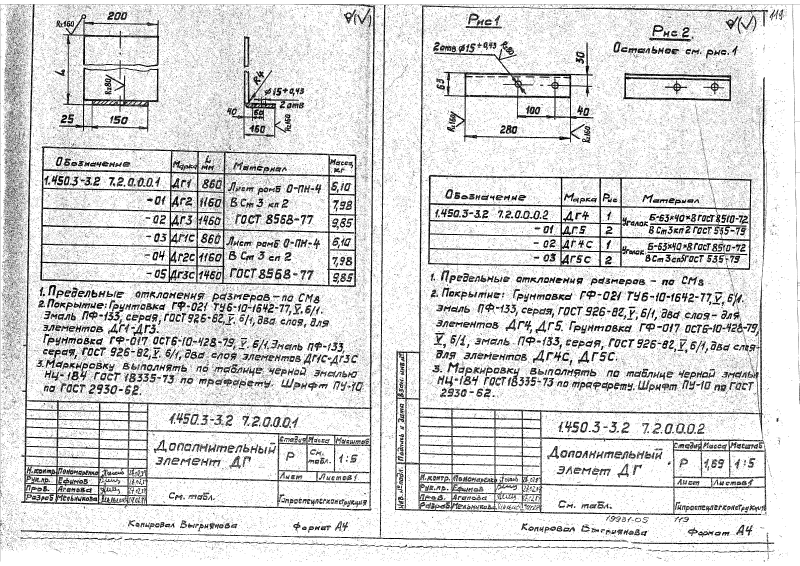 200
Rz160
L
Rz80
25
150
R4
φ15+0,43
2 отв
40
60
160
Rz160
Обозначение Марка L мм Материал Масса, кг
1.450.3-3.2 7.2.0.0.0.1 ДГ1 860 Лист ромб О-ПН-4 6,10
-01 ДГ2 1160 В Ст 3 кп 2 7,98
-02 ДГ3 1460 ГОСТ 8568-77 9,85
-03 ДГ1С 860 Лист ромб О-ПН-4 6,10
-04 ДГ2С 1160 В Ст 3 сп 2 7,98
-05 ДГ3С 1460 ГОСТ 8568-77 9,85
1. Предельные отклонения размеров - по СМ8
2. Покрытие: Грунтовка ГФ-021 ТУ6-10-1642-77, V, б/1.
Эмаль ПФ-133, серая, ГОСТ 926-82, V, б/1, два слоя, для
элементов ДГ1-ДГ3.
Грунтовка ГФ-017 ОСТ6-10-428-79, V, б/1, Эмаль ПФ-133,
серая, ГОСТ 926-82, V, б/1, два слоя элементов ДГ1С-ДГ3С
3. Маркировку выполнять по таблице черной эмалью
НЦ-184 ГОСТ 18335-73 по трафарету. Шрифт ПУ-10
по ГОСТ 2930-62.
1.450.3-3.2 7.2.0.0.0.1
Дополнительный
элемент ДГ
Стадия Масса Масштаб
Р См. табл. 1:5
Лист Листов 1
Н.контр. Пономаренко
Рук.пр. Ефимов
Пров. Агапова
Разраб. Мельникова
См. табл.
Гипроспецлегконструкция
Копировал Выгриянова Формат А4
119
Рис 1
Рис 2.
Остальное см. рис. 1
2 отв φ15+0,43
Rz80
30
63
100
40
Rz160
280
Rz160
Обозначение Марка Рис Материал
1.450.3-3.2 7.2.0.0.0.2 ДГ4 1 Уголок Б-63×40×8 ГОСТ 8510-72
-01 ДГ5 2 В Ст 3 кп 2 ГОСТ 535-79
-02 ДГ4С 1 Уголок Б-63×40×8 ГОСТ 8510-72
-03 ДГ5С 2 В Ст 3 сп 5 ГОСТ 535-79
1. Предельные отклонения размеров - по СМ8
2. Покрытие: Грунтовка ГФ-021 ТУ6-10-1642-77, V, б/1.
эмаль ПФ-133, серая, ГОСТ 926-82, V, б/1, два слоя - для
элементов ДГ4, ДГ5. Грунтовка ГФ-017 ОСТ6-10-428-79,
V, б/1, эмаль ПФ-133, серая, ГОСТ 926-82, V, б/1, два слоя-
для элементов ДГ4С, ДГ5С.
3. Маркировку выполнять по таблице черной эмалью
НЦ-184 ГОСТ 18335-73 по трафарету. Шрифт ПУ-10 по ГОСТ
2930-62.
Взам. инв.№
Подпись и дата
Инв. № подл.
1.450.3-3.2 7.2.0.0.0.2
Дополнительный
элемет ДГ
Стадия Масса Масштаб
Р 1,69 1:5
Лист Листов 1
Н.контр. Пономаренко
Рук.пр. Ефимов
Пров. Агапова
Разраб. Мельникова
См. табл.
Гипроспецлегконструкция
19981-05 119
Копировал Выгриянова Формат А4